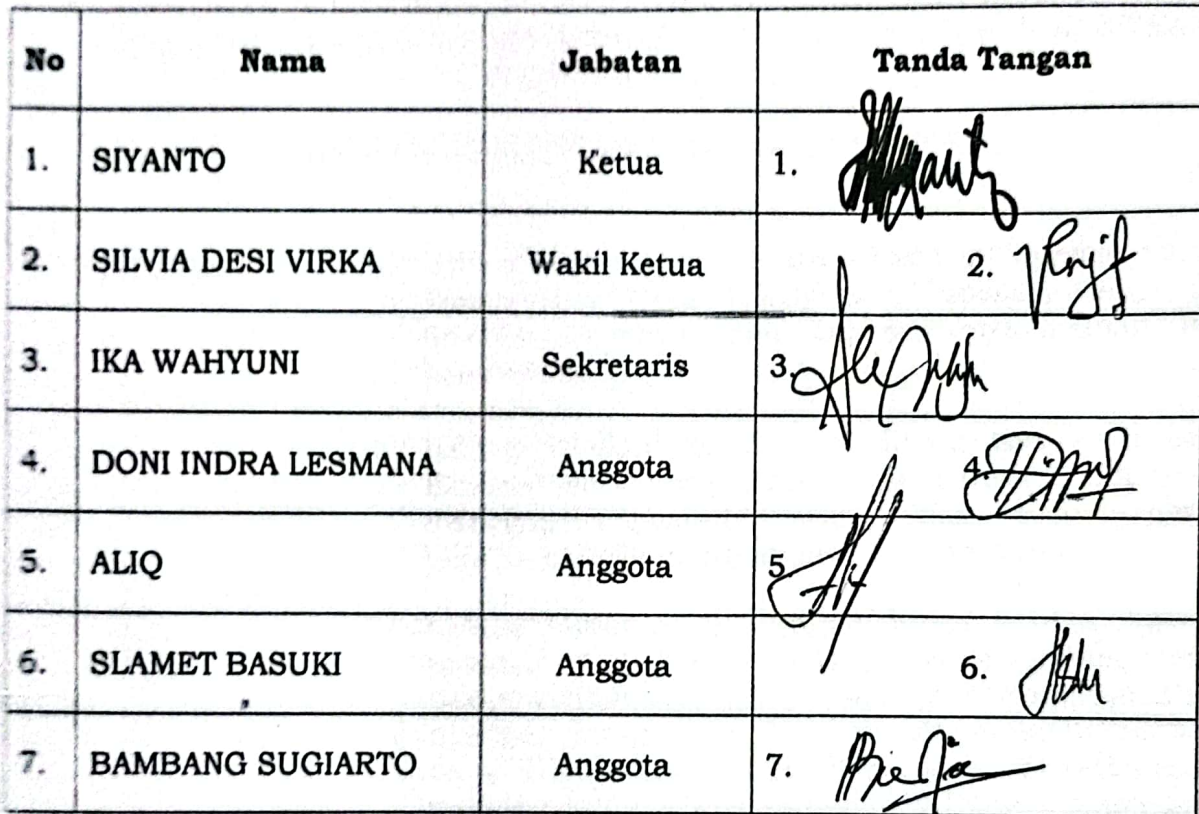 No Nama Jabatan Tanda Tangan
1. SIYANTO Ketua 1.
2. SILVIA DESI VIRKA Wakil Ketua 2.
3. IKA WAHYUNI Sekretaris 3.
4. DONI INDRA LESMANA Anggota 4
5. ALIQ Anggota 5
6. SLAMET BASUKI Anggota 6.
7. BAMBANG SUGIARTO Anggota 7.